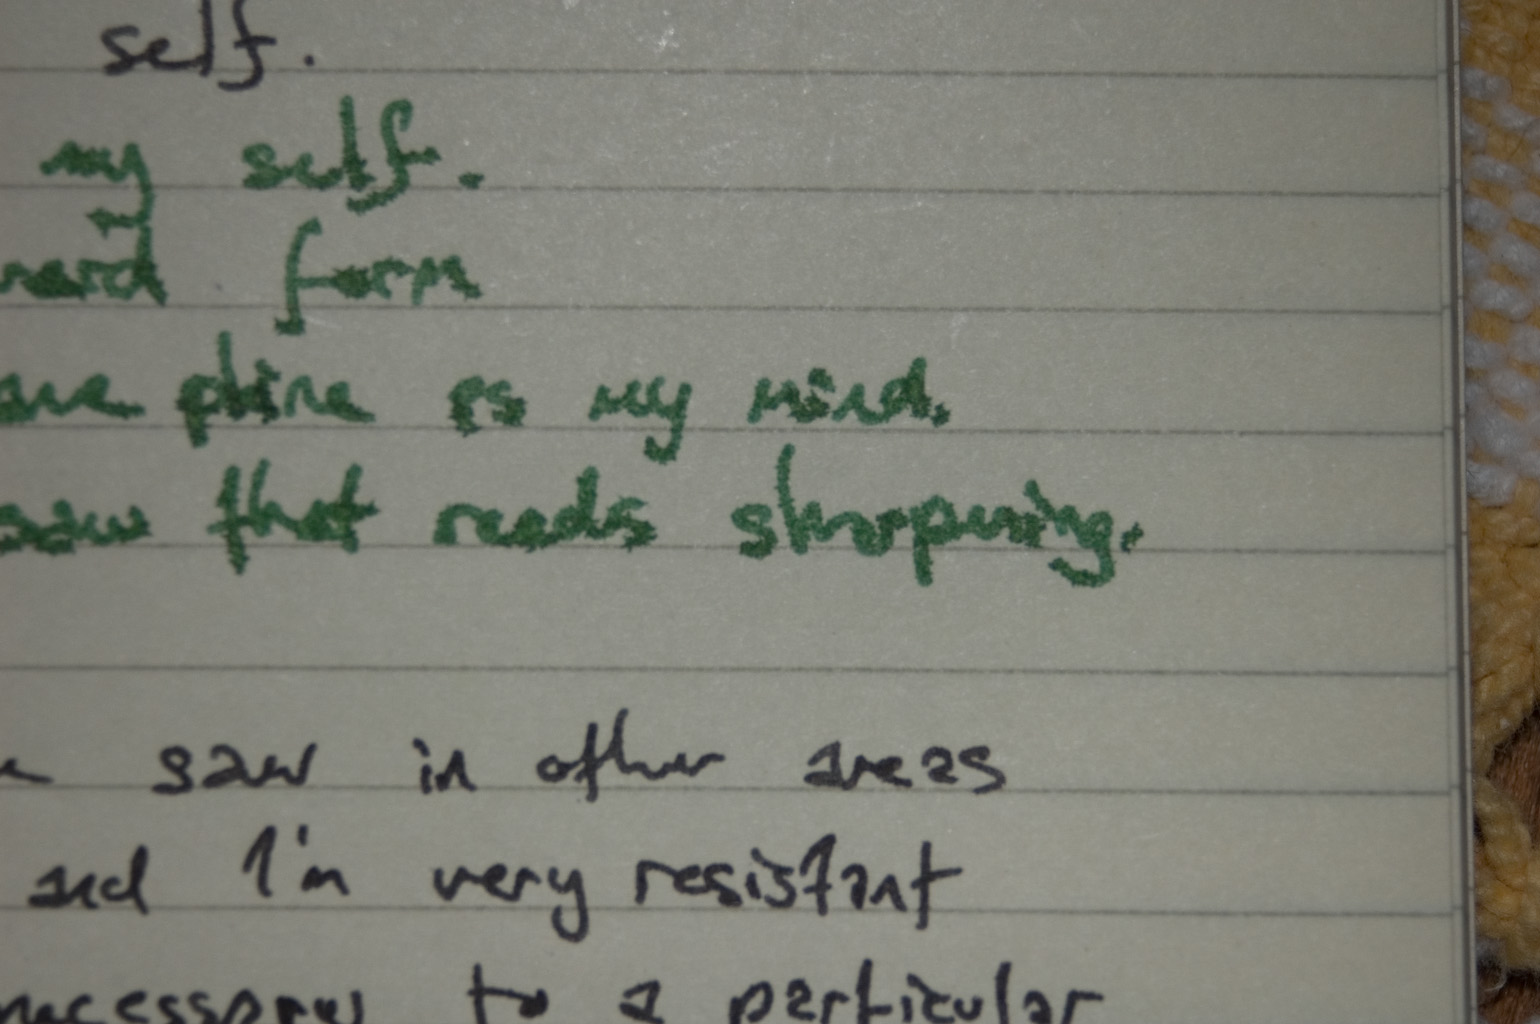 self.
my self.
form
my mind.
saw that needs sharpening.
saw in other areas
and I'm very resistant
necessary to a particular